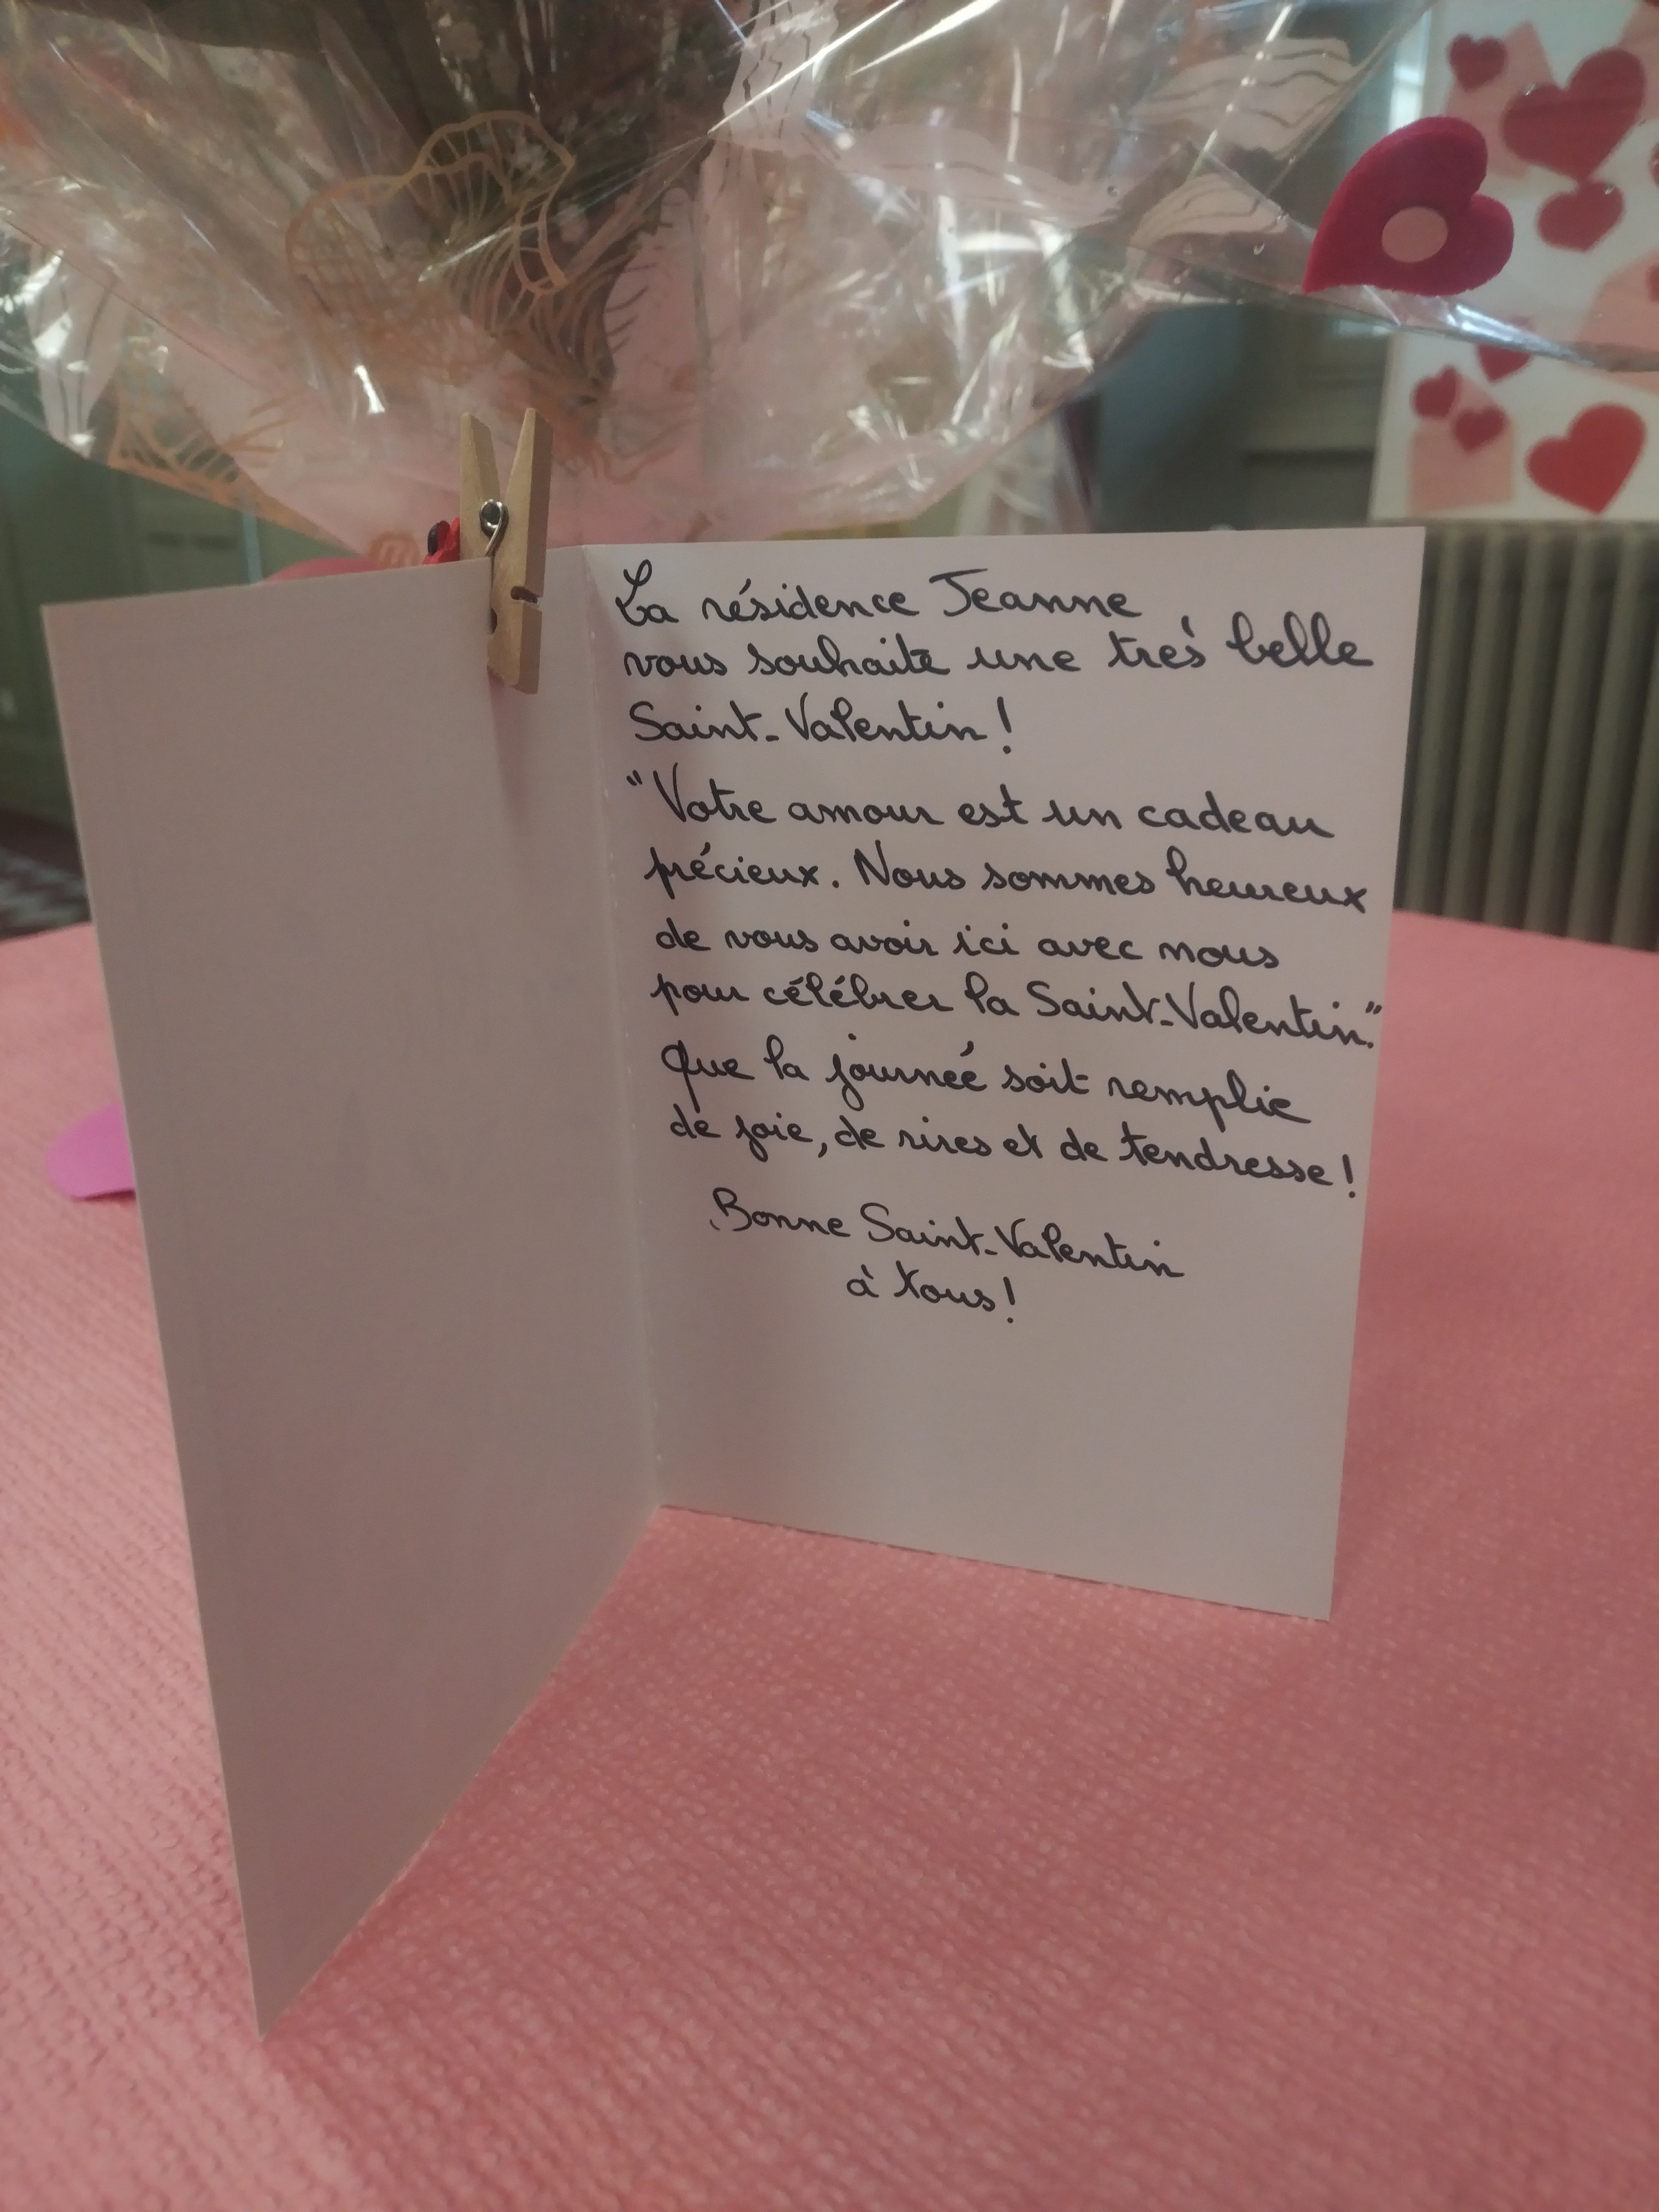 La résidence Jeanne
vous souhaite une très belle
Saint-Valentin !
"Votre amour est un cadeau
précieux. Nous sommes heureux
de vous avoir ici avec nous
pour célébrer la Saint-Valentin."
Que la journée soit remplie
de joie, de rires et de tendresse !
Bonne Saint-Valentin
à tous !